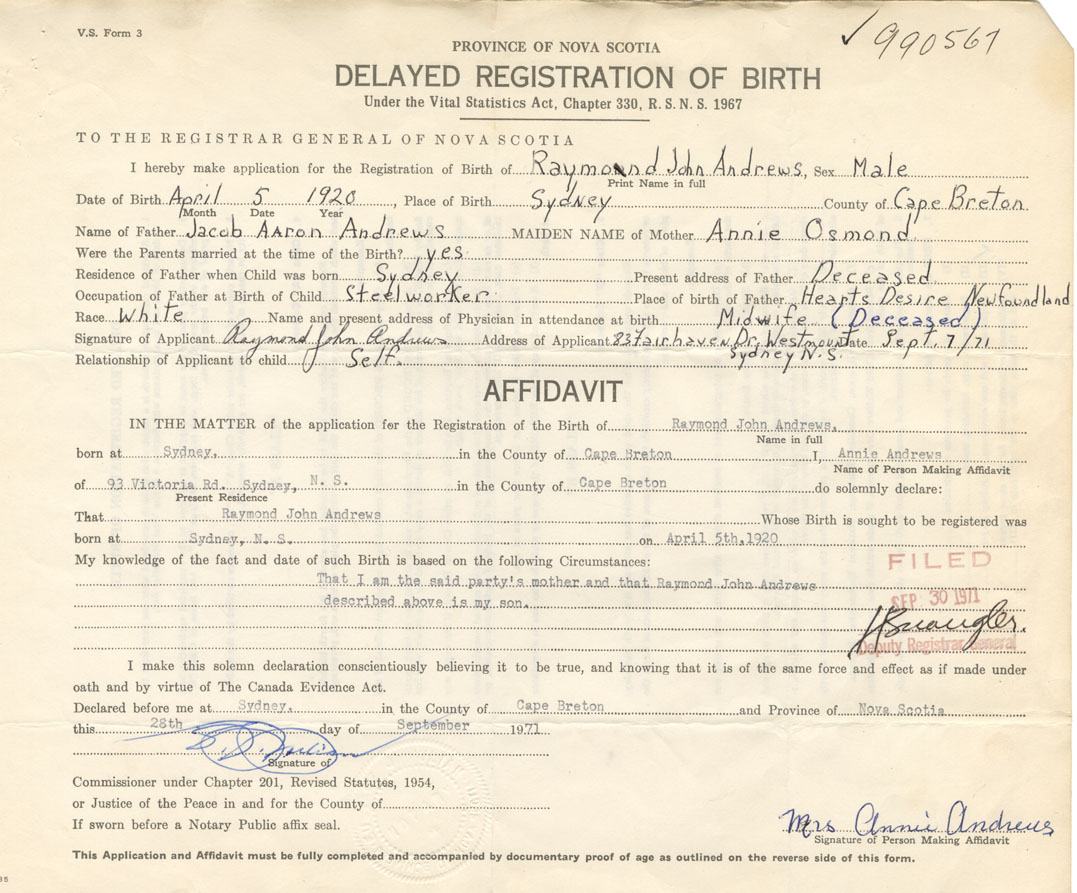 V.S. Form 3
✓990567
PROVINCE OF NOVA SCOTIA
DELAYED REGISTRATION OF BIRTH
Under the Vital Statistics Act, Chapter 330, R. S. N. S. 1967
TO THE REGISTRAR GENERAL OF NOVA SCOTIA
I hereby make application for the Registration of Birth of Raymond John Andrews, Sex Male
Print Name in full
Date of Birth April 5 1920, Place of Birth Sydney County of Cape Breton
Month Date Year
Name of Father Jacob Aaron Andrews MAIDEN NAME of Mother Annie Osmond
Were the Parents married at the time of the Birth? yes
Residence of Father when Child was born Sydney Present address of Father Deceased
Occupation of Father at Birth of Child Steelworker Place of birth of Father Hearts Desire Newfoundland
Race White Name and present address of Physician in attendance at birth Midwife (Deceased)
Signature of Applicant Raymond John Andrews Address of Applicant 83 Fairhaven Dr, Westmount Date Sept. 7/71
Relationship of Applicant to child Self. Sydney N.S.
AFFIDAVIT
IN THE MATTER of the application for the Registration of the Birth of Raymond John Andrews,
Name in full
born at Sydney, in the County of Cape Breton I, Annie Andrews
Name of Person Making Affidavit
of 93 Victoria Rd. Sydney, N. S. in the County of Cape Breton do solemnly declare:
Present Residence
That Raymond John Andrews Whose Birth is sought to be registered was
born at Sydney, N. S. on April 5th, 1920
My knowledge of the fact and date of such Birth is based on the following Circumstances:
FILED
That I am the said party's mother and that Raymond John Andrews
described above is my son.
SEP 30 1971
Deputy Registrar General
I make this solemn declaration conscientiously believing it to be true, and knowing that it is of the same force and effect as if made under
oath and by virtue of The Canada Evidence Act.
Declared before me at Sydney, in the County of Cape Breton and Province of Nova Scotia
this 28th day of September 1971
Signature of
Commissioner under Chapter 201, Revised Statutes, 1954,
or Justice of the Peace in and for the County of
If sworn before a Notary Public affix seal.
Mrs Annie Andrews
Signature of Person Making Affidavit
This Application and Affidavit must be fully completed and accompanied by documentary proof of age as outlined on the reverse side of this form.